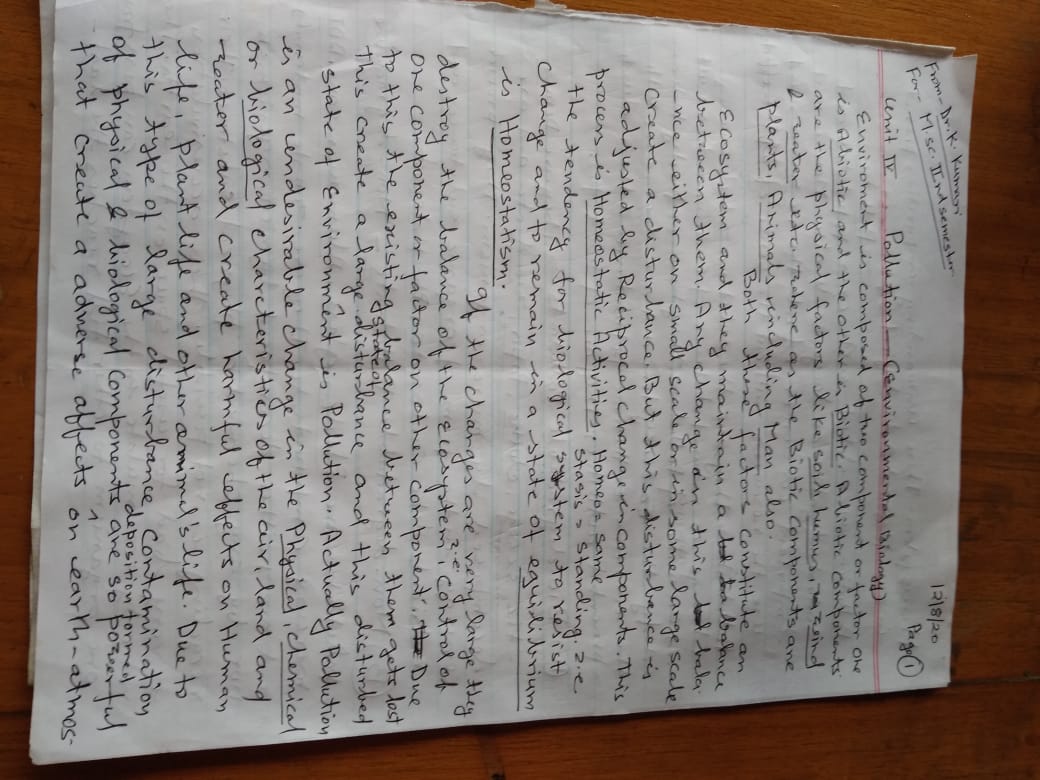 From - Dr. K. Kumari
For - M.Sc. IInd semester
12/8/20
Page ①
Unit IV Pollution (Environmental Biology)
Enviroment is composed of two component or factor one
is Abiotic and the other is Biotic. Abiotic components
are the physical factors like soil, humus, wind
& water etc. where as the Biotic components are
plants, Animals including Man also.
Both these factors constitute an
Ecosystem and they maintain a balance
between them. Any change in this bala-
-nce either on small scale or in some large scale
create a disturbance. But this disturbence is
adjusted by Reciprocal change in components. This
process is Homeostatic Activities. Homeo = same
stasis = standing. i.e
the tendency for biological system to resist
change and to remain in a state of equilibrium
is Homeostatism.
If the changes are very large they
destroy the balance of the ecosystem, i.e. control of
one component or factor on other component. Due
to this the existing state of balance between them gets lost
This create a large disturbance and this disturbed
state of Enviroment is Pollution. Actually Pollution
is an undesirable change in the Physical, chemical
or biological charecteristics of the air, land and
water and create harmful effects on Human
life, plant life and other animel's life. Due to
this type of large disturbance, Contamination
of physical & biological components deposition formed are so powerful
that create a adverse affects on earth-atmos-